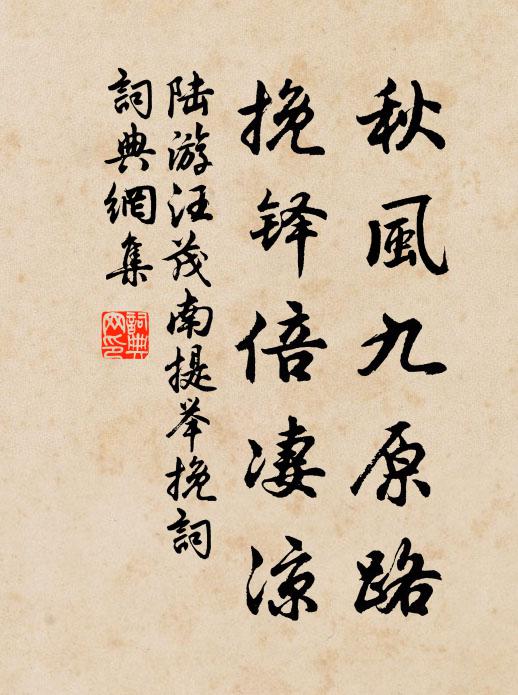 秋風九原路
挽铎倍凄涼
陆游汪茂南提举挽詞
詞典網集
詞典網印